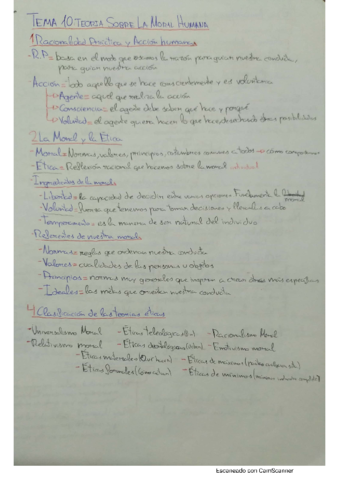 TEMA 10 TEORÍA SOBRE LA MORAL HUMANA
1. Racionalidad Práctica y Acción humana
- R.P = basa en el modo que usamos la razón para guiar nuestra conducta,
para guiar nuestra acción
Acción = todo aquello que se hace conscientemente y es voluntario
- Agente = aquel que realiza la acción
- Consciencia = el agente debe saber que hace y porqué
- Voluntad = el agente quiere hacer lo que hace, descartando otras posibilidades
2. La Moral y la Ética
- Moral = Normas, valores, principios, costumbres comunes a todos → cómo comportarse
- Ética = Reflexión racional que hacemos sobre la moral individual
- Ingredientes de la moral
- Libertad = la capacidad de decidir entre varias opciones. Fundamento de la
- Voluntad = fuerza que tenemos para tomar decisiones y llevarlas a cabo
- Temperamento = es la manera de ser natural del individuo
- Referentes de nuestra moral
- Normas = reglas que ordenan nuestra conducta
- Valores = cualidades de las personas u objetos
- Principios = normas muy generales que inspiran a otras más específicas
- Ideales = las metas que orientan nuestra conducta
4. Clasificación de las teorías éticas
- Universalismo Moral - Éticas teleológicas - Racionalismo Moral
- Relativismo moral - Éticas deontológicas - Emotivismo moral
- Éticas materiales - Éticas de máximos
- Éticas formales - Éticas de mínimos
Escaneado con CamScanner